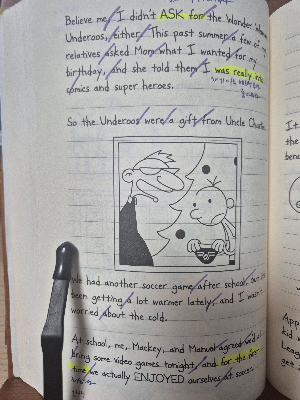 Believe me, I didn't ASK for the Wonder Woman
Underoos, either. This past summer a few of my
relatives asked Mom what I wanted for my
birthday, and she told them I was really into
comics and super heroes.
So the Underoos were a gift from Uncle Charlie.
We had another soccer game after school, but it's
been getting a lot warmer lately, and I wasn't
worried about the cold.
At school, me, Mackey, and Manuel agreed we'd all
bring some video games tonight, and for the first
time we actually ENJOYED ourselves at soccer.
It
ben
App
kid
Leag
get